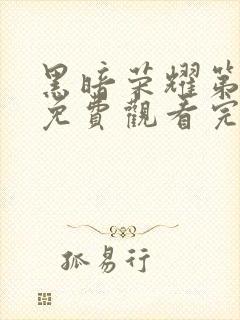 黑暗荣耀第
免費觀看完
孤易行